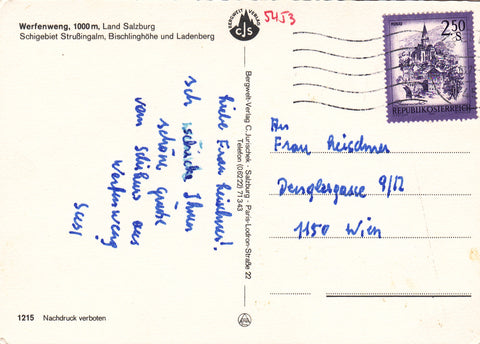 Werfenweng, 1000 m, Land Salzburg
Schigebiet Strußingalm, Bischlinghöhe und Ladenberg
BERGWELT VERLAG
CJS
5453
2.50
S
REPUBLIK ÖSTERREICH
Liebe Frau Reischner!
Ich schicke Ihnen
schöne Grüße
vom Schikurs aus
Werfenweng
Susi
Bergwelt-Verlag C. Jurischek · Salzburg · Paris-Lodron-Straße 22
Telefon (06222) 71343
An
Frau Reischner
Denglergasse 9/12
1150 Wien
1215 Nachdruck verboten